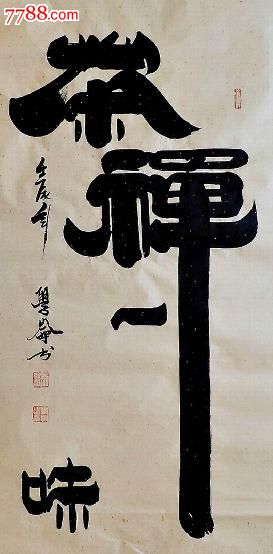 7788.com
茶禪一味
壬辰年